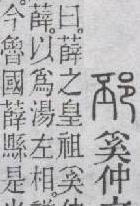 邳奚仲之
曰薛之皇祖奚仲
薛以為湯左相
今魯國薛縣是